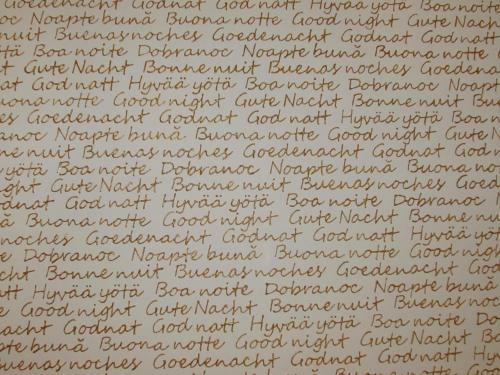 Goedenacht Godnat God natt Hyvää yötä Boa
Noapte bună Buona notte Good night Gute Nacht
nuit Buenas noches Goedenacht Godnat God natt
Boa noite Dobranoc Noapte bună Buona notte
Gute Nacht Bonne nuit Buenas noches
God natt Hyvää yötä Boa noite Dobranoc
notte Good night Gute Nacht Bonne nuit
Goedenacht Godnat God natt Hyvää yötä Boa
Noapte bună Buona notte Good night Gute
nuit Buenas noches Goedenacht Godnat God
yötä Boa noite Dobranoc Noapte bună Buona
Gute Nacht Bonne nuit Buenas noches
God natt Hyvää yötä Boa noite Dobranoc
Buona notte Good night Gute Nacht Bonne
noches Goedenacht Godnat God natt Hyvää
Dobranoc Noapte bună Buona notte Good
Bonne nuit Buenas noches Goedenacht
Hyvää yötä Boa noite Dobranoc Noapte bună
Good night Gute Nacht Bonne nuit Buenas
Godnat God natt Hyvää yötä Boa noite
bună Buona notte Good night Gute Nacht
noches Goedenacht Godnat God natt Hyvää